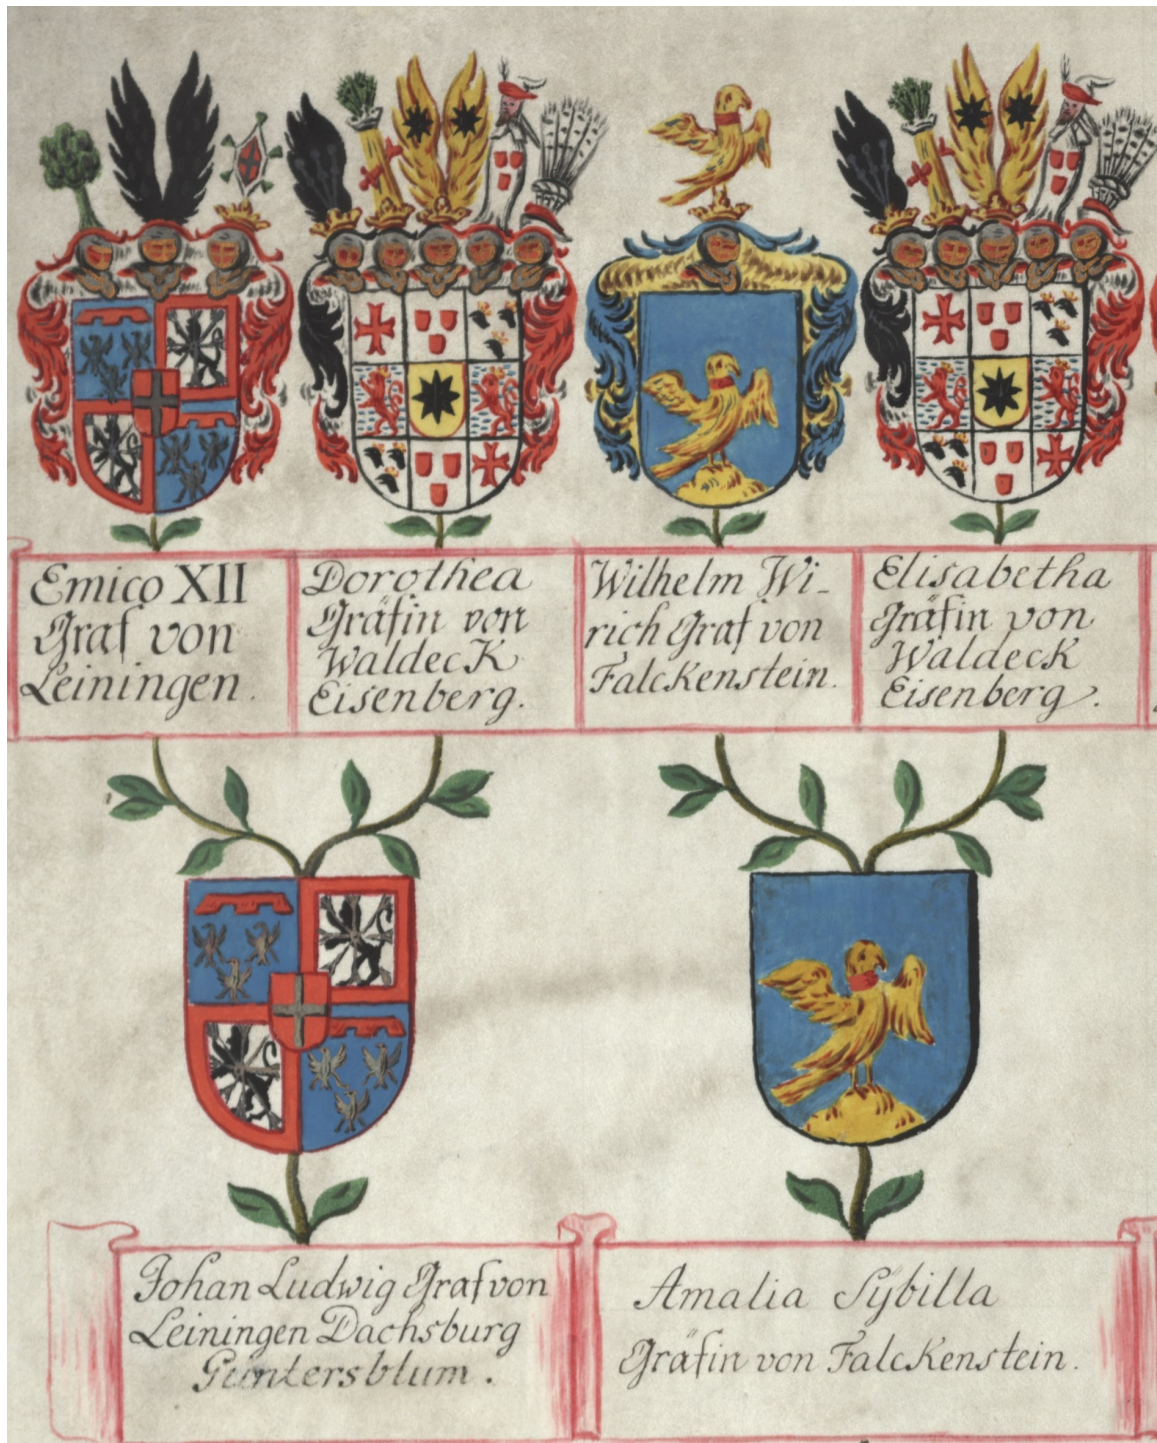 Emico XII
Graf von
Leiningen.
Dorothea
Gräfin von
WaldecK
Eisenberg.
Wilhelm Wi-
rich Graf von
FalcKenstein.
Elisabetha
Gräfin von
Waldeck
Eisenberg.
Johan Ludwig Graf von
Leiningen Dachsburg
Güntersblum.
Amalia Sÿbilla
Gräfin von FalcKenstein.